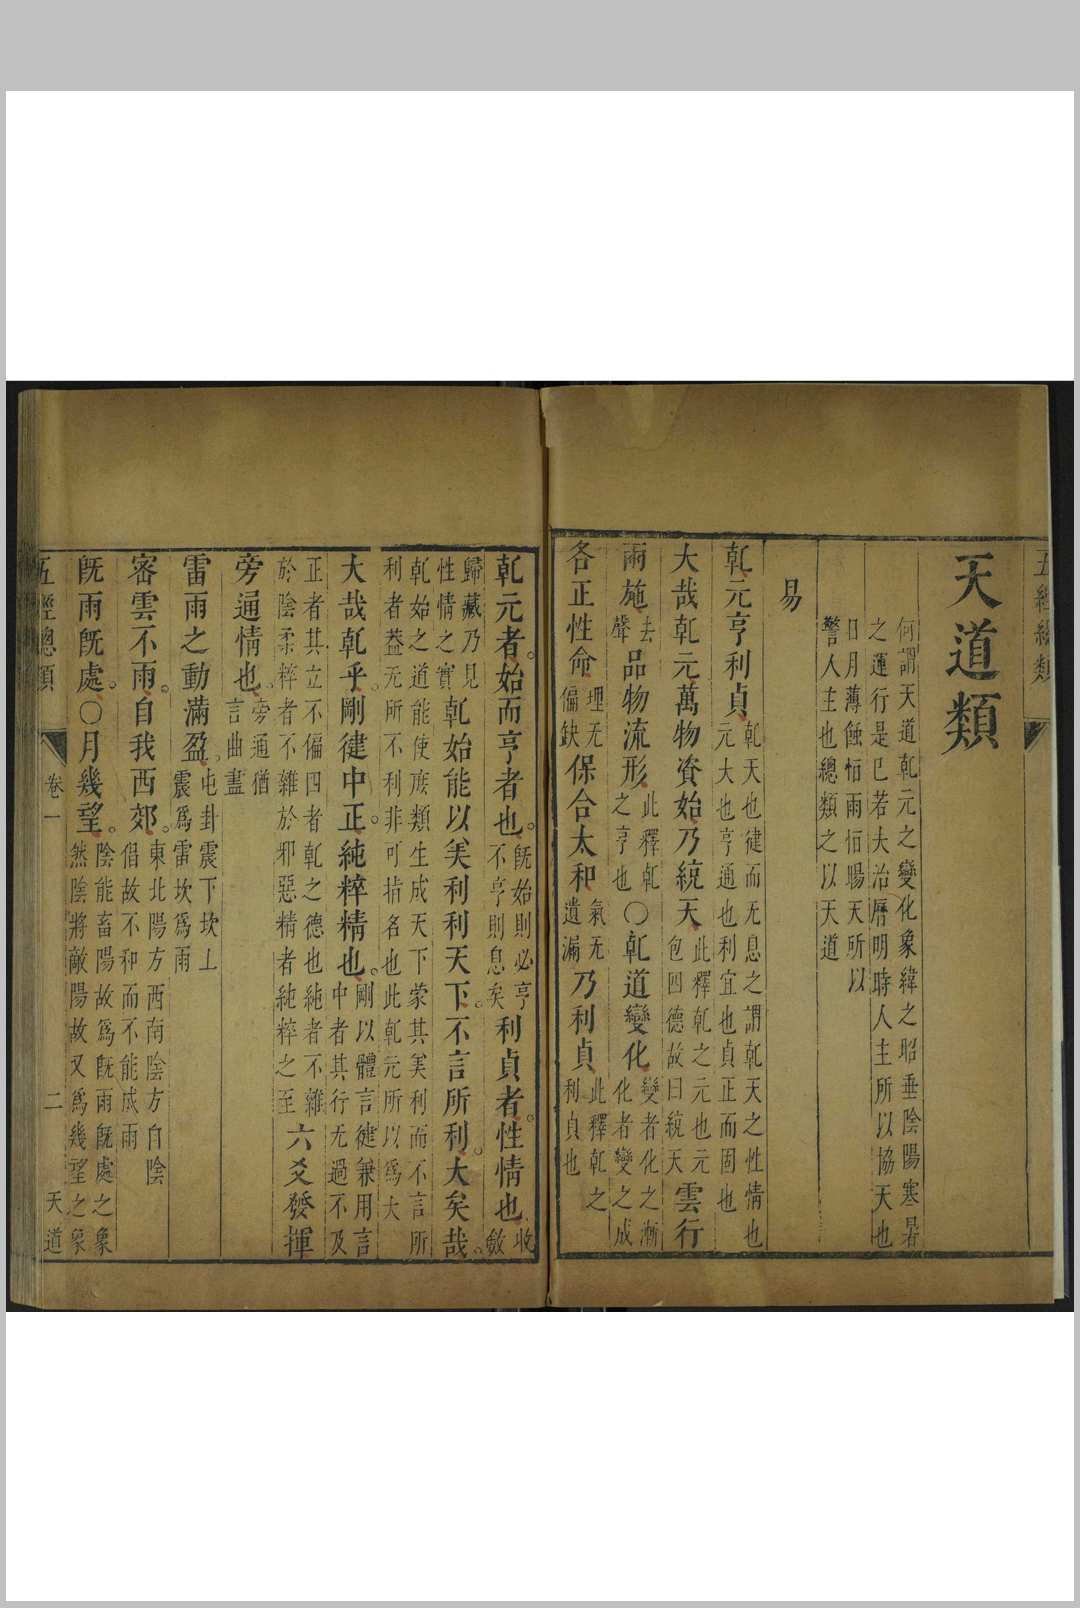 五經總類
天道類
何謂天道乾元之變化象緯之昭垂陰陽寒暑
之運行是已若大治曆明時人主所以協天也
日月薄蝕恒雨恒暘天所以
警人主也總類之以天道
易
乾元亨利貞乾天也健而无息之謂乾天之性情也元大也亨通也利宜也貞正而固也
大哉乾元萬物資始乃統天此釋乾之元也元包四德故曰統天雲行
雨施去聲品物流形此釋乾之亨也○乾道變化變者化之漸化者變之成
各正性命理无偏缺保合太和氣无遺漏乃利貞此釋乾之利貞也
乾元者始而亨者也旣始則必亨不亨則息矣利貞者性情也收斂
歸藏乃見性情之實乾始能以美利利天下不言所利大矣哉
乾始之道能使庶類生成天下蒙其美利而不言所利者蓋无所不利非可指名也此乾元所以爲大
大哉乾乎剛健中正純粹精也剛以體言健兼用言中者其行无過不及
正者其立不偏四者乾之德也純者不雜於陰柔粹者不雜於邪惡精者純粹之至六爻發揮
旁通情也旁通猶言曲盡
雷雨之動滿盈屯卦震下坎上震爲雷坎爲雨
密雲不雨自我西郊東北陽方西南陰方自陰倡故不和而不能成雨
旣雨旣處○月幾望陰能畜陽故爲旣雨旣處之象然陰將敵陽故又爲幾望之象
五經總類
卷一
二
天道